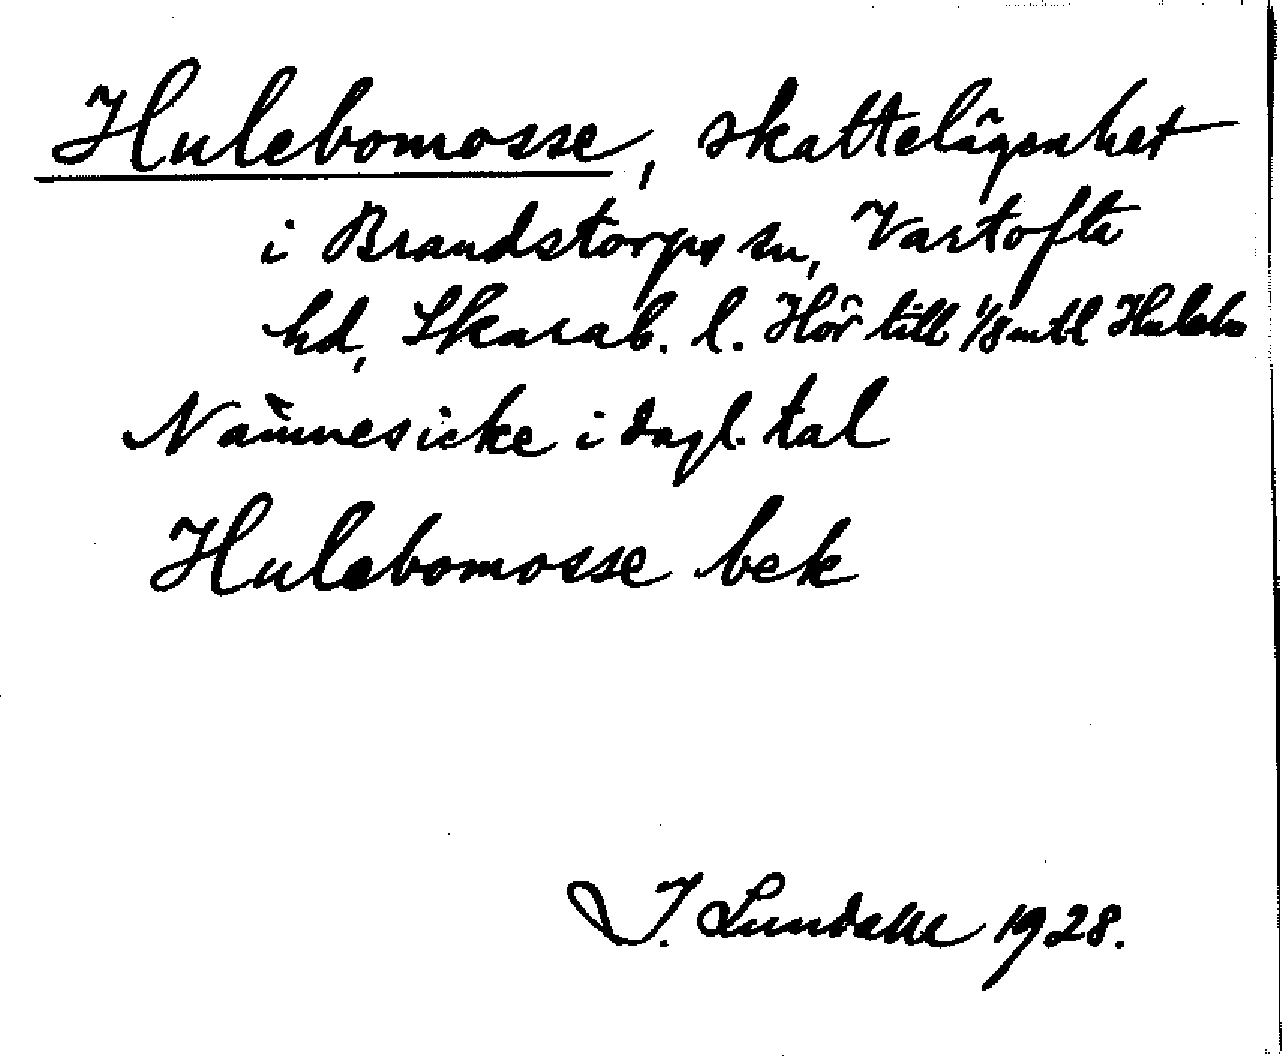 Hulebomosse, skattelägenhet
i Brandstorps sn, Vartofta
hd, Skarab. l. Hör till 1/8 mtl Hulebo
Nämnes icke i dagl. tal
Hulebomosse bek
J. Lundahl 1928.